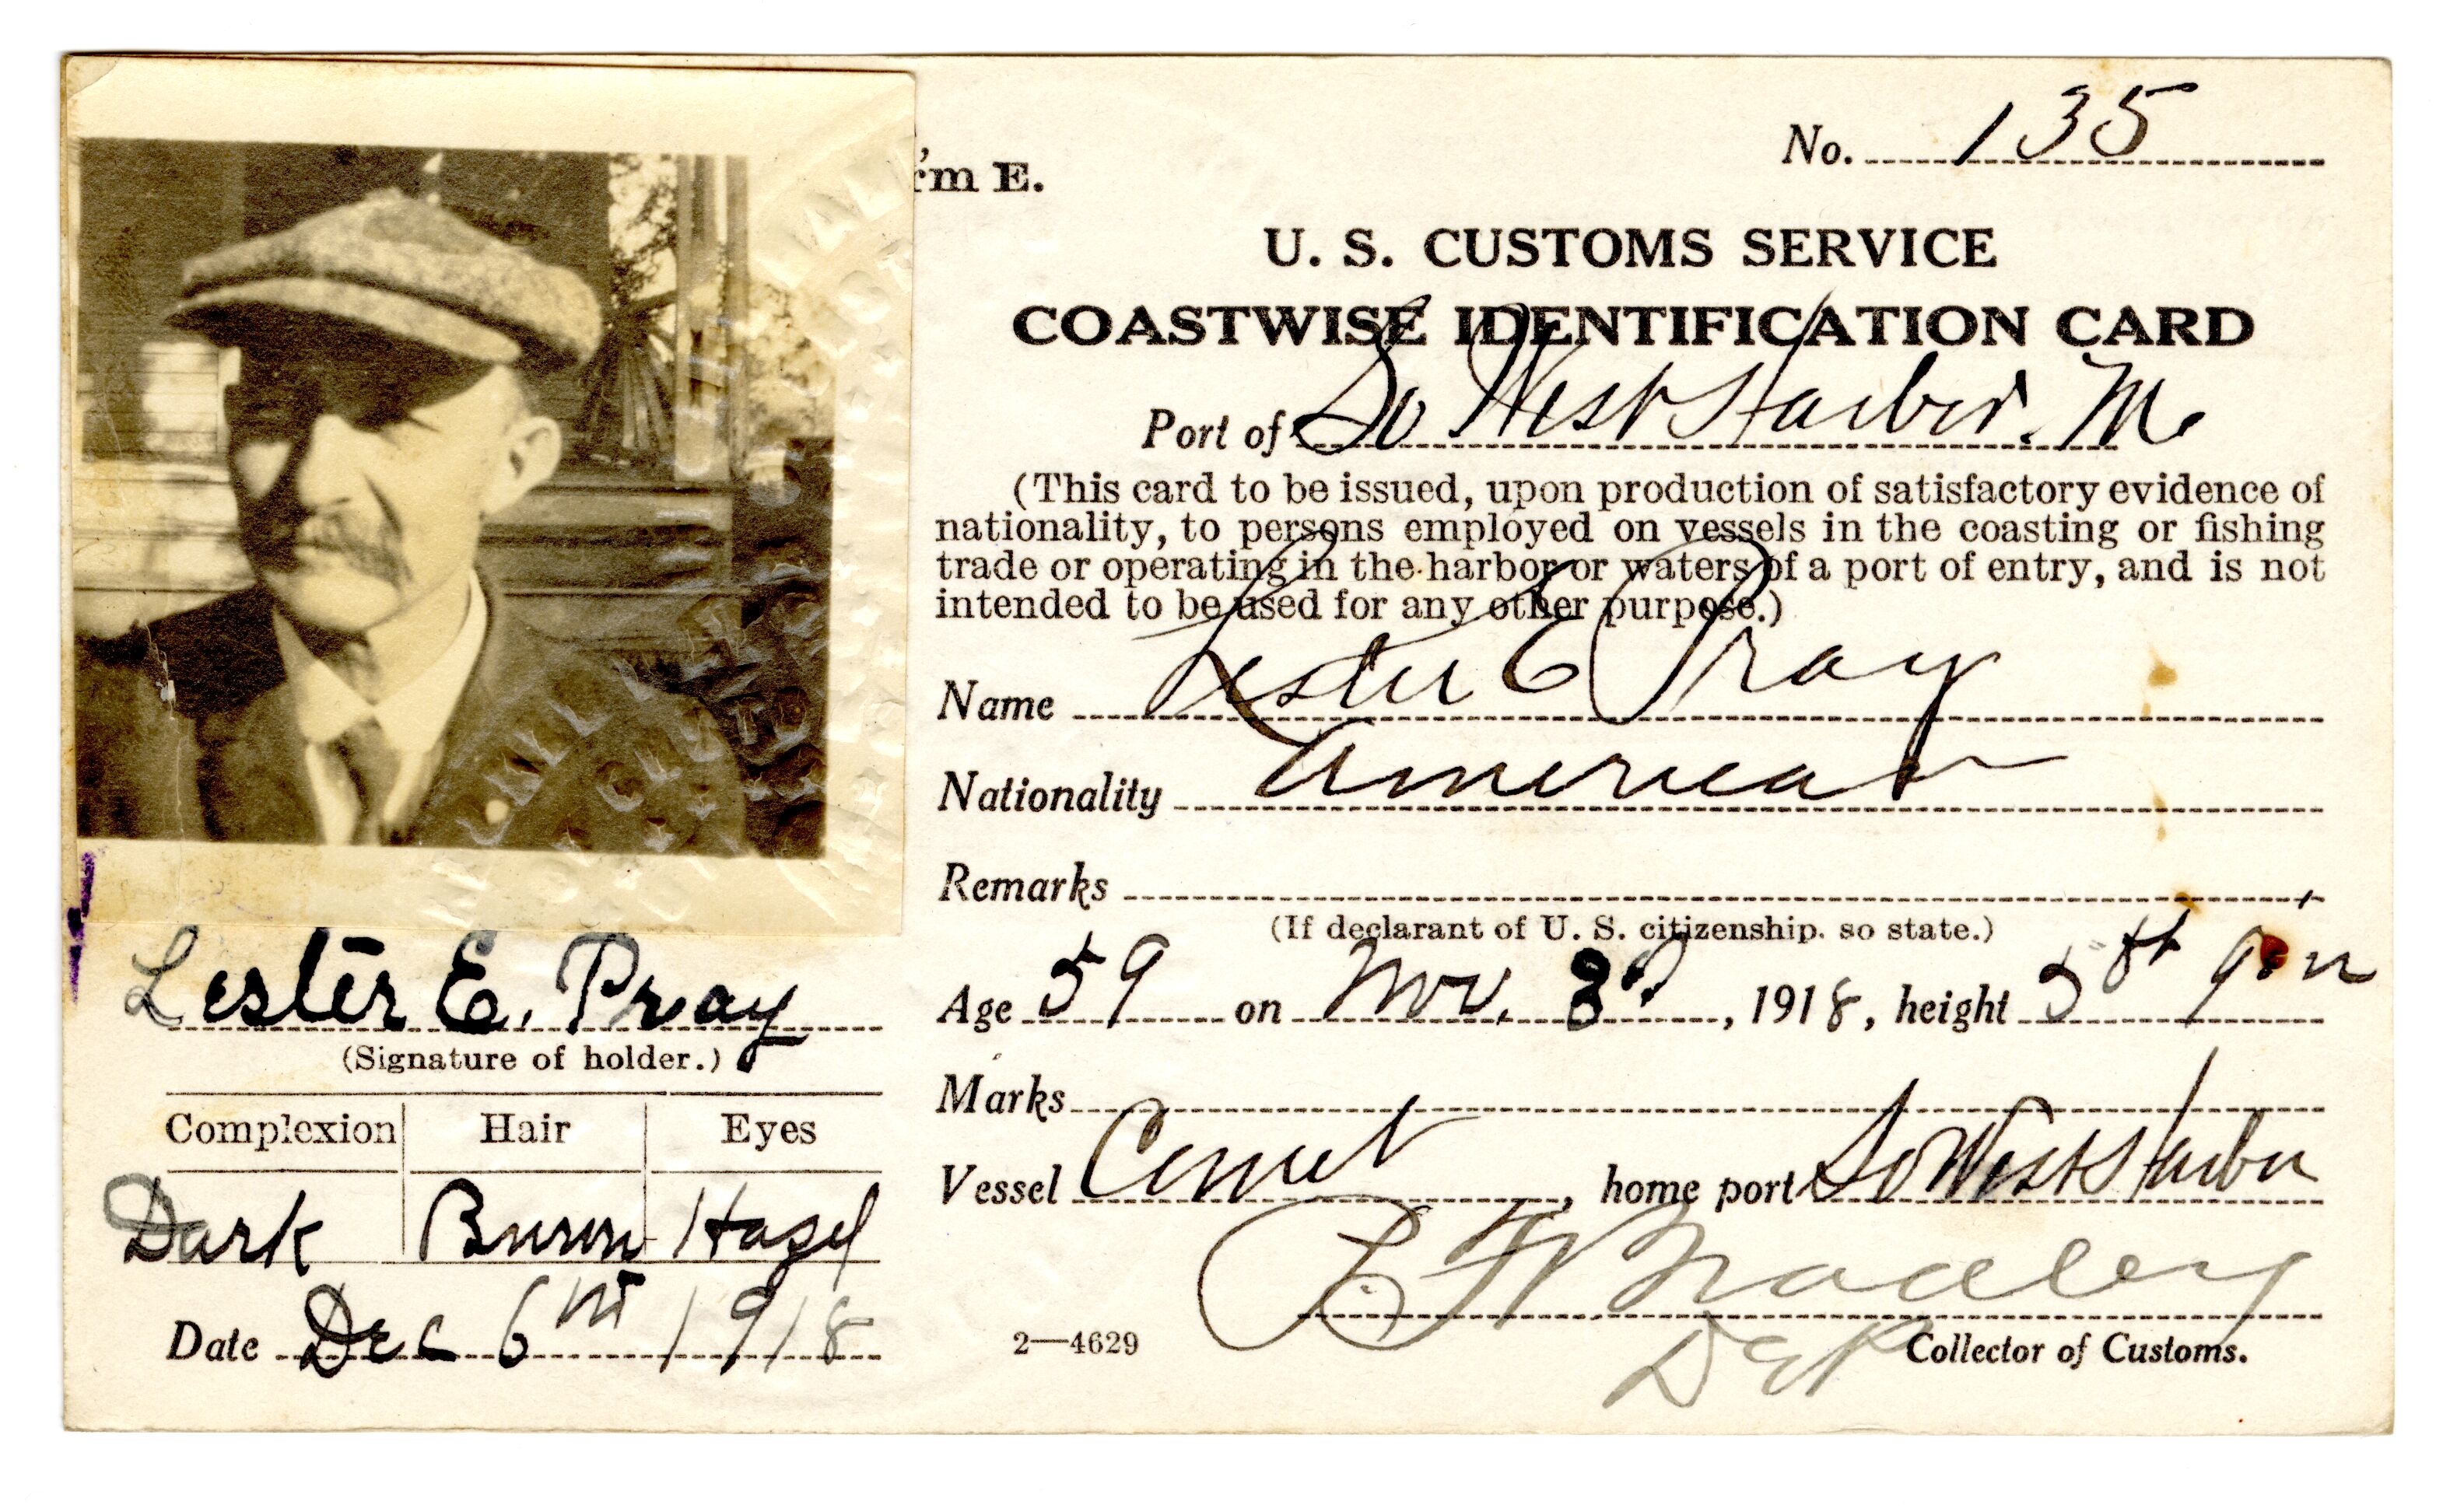 'm E.
No. 135
U. S. CUSTOMS SERVICE
COASTWISE IDENTIFICATION CARD
Port of So West Harbor. Me
(This card to be issued, upon production of satisfactory evidence of
nationality, to persons employed on vessels in the coasting or fishing
trade or operating in the harbor or waters of a port of entry, and is not
intended to be used for any other purpose.)
Name Lester E Pray
Nationality American
Remarks
(If declarant of U. S. citizenship. so state.)
Age 59 on Nov. 3d, 1918, height 5 ft 9 in
Marks
Vessel, home port So West Harbor
Collector of Customs.
Dep
2—4629
Lester E. Pray
(Signature of holder.)
Complexion Hair Eyes
Dark Brown Hazel
Date Dec 6th 1918